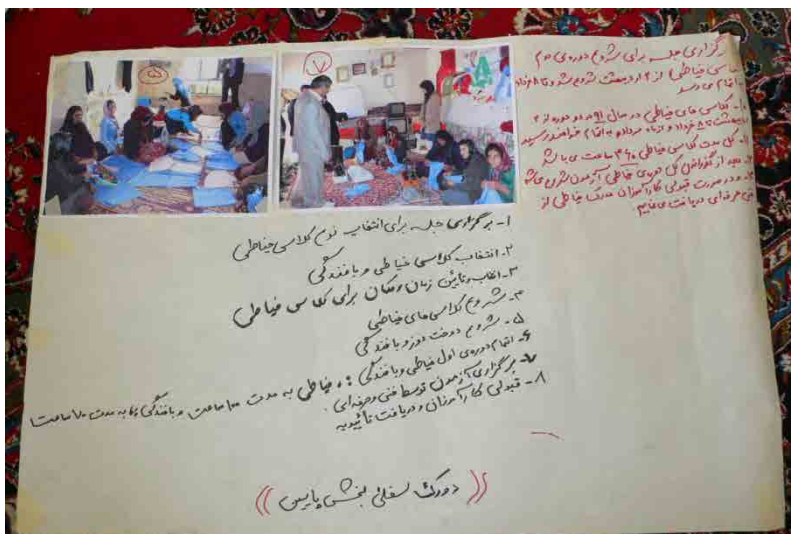 ۵
۷
برگزاری جلسه برای شروع دوره‌ی دوم
کلاس خیاطی از ۲ اردیبهشت شروع شد و تا ۸ خرداد
به اتمام می‌رسد
۱۰- کلاس های خیاطی در سال ۹۱ در دو دوره از ۲
اردیبهشت تا ۸ خرداد و مرداد به اتمام خواهند رسید
۱۱- کل مدت کلاس خیاطی ۳۶۰ ساعت می باشد
بعد از گذراندن کل دوره‌ی خیاطی آزمون شروع می‌شود
و در صورت قبولی کارآموزان مدرک خیاطی از
فنی حرفه‌ای دریافت می نمایند
۱- برگزاری جلسه برای انتخاب نوع کلاس خیاطی
۲- انتخاب کلاس خیاطی و بافندگی
۳- انتخاب و تعیین زمان و مکان برای کلاس خیاطی
۴- شروع کلاس های خیاطی
۵- شروع دوخت دوز و بافندگی
۶- اتمام دوره‌ی اول خیاطی و بافندگی : خیاطی به مدت ۱۰۰ ساعت و بافندگی به مدت ۷۰ ساعت
۷- برگزاری آزمون توسط فنی و حرفه‌ای .
۸- قبولی کارآموزان و دریافت تأئیدیه
(( دورک سفلی بخش پایین ))